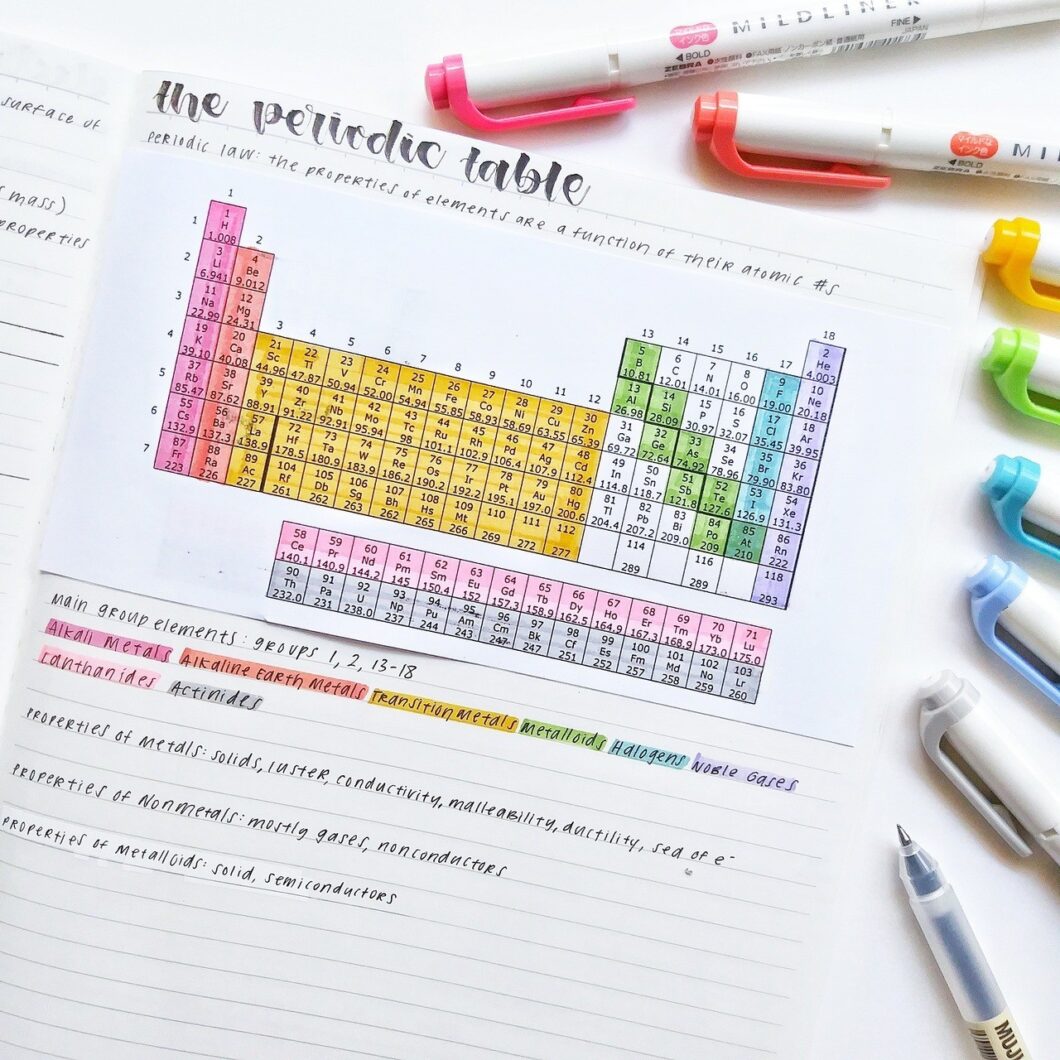 surface of
mass)
properties
the periodic table
Periodic law: the properties of elements are a function of their atomic #s
1 18
1 H 1.008 2 13 14 15 16 17 2 He 4.003
1 2 3 4 5 6 7
3 Li 6.941 4 Be 9.012 5 B 10.81 6 C 12.01 7 N 14.01 8 O 16.00 9 F 19.00 10 Ne 20.18
11 Na 22.99 12 Mg 24.31 3 4 5 6 7 8 9 10 11 12 13 Al 26.98 14 Si 28.09 15 P 30.97 16 S 32.07 17 Cl 35.45 18 Ar 39.95
19 K 39.10 20 Ca 40.08 21 Sc 44.96 22 Ti 47.87 23 V 50.94 24 Cr 52.00 25 Mn 54.94 26 Fe 55.85 27 Co 58.93 28 Ni 58.69 29 Cu 63.55 30 Zn 65.39 31 Ga 69.72 32 Ge 72.64 33 As 74.92 34 Se 78.96 35 Br 79.90 36 Kr 83.80
37 Rb 85.47 38 Sr 87.62 39 Y 88.91 40 Zr 91.22 41 Nb 92.91 42 Mo 95.94 43 Tc 98 44 Ru 101.1 45 Rh 102.9 46 Pd 106.4 47 Ag 107.9 48 Cd 112.4 49 In 114.8 50 Sn 118.7 51 Sb 121.8 52 Te 127.6 53 I 126.9 54 Xe 131.3
55 Cs 132.9 56 Ba 137.3 57 La 138.9 72 Hf 178.5 73 Ta 180.9 74 W 183.9 75 Re 186.2 76 Os 190.2 77 Ir 192.2 78 Pt 195.1 79 Au 197.0 80 Hg 200.6 81 Tl 204.4 82 Pb 207.2 83 Bi 209.0 84 Po 209 85 At 210 86 Rn 222
87 Fr 223 88 Ra 226 89 Ac 227 104 Rf 261 105 Db 262 106 Sg 263 107 Bh 262 108 Hs 265 109 Mt 266 110 269 111 272 112 277 114 289 116 289 118 293
58 Ce 140.1 59 Pr 140.9 60 Nd 144.2 61 Pm 145 62 Sm 150.4 63 Eu 152 64 Gd 157.3 65 Tb 158.9 66 Dy 162.5 67 Ho 164.9 68 Er 167.3 69 Tm 168.9 70 Yb 173.0 71 Lu 175.0
90 Th 232.0 91 Pa 231 92 U 238.0 93 Np 237 94 Pu 244 95 Am 243 96 Cm 247 97 Bk 247 98 Cf 251 99 Es 252 100 Fm 257 101 Md 258 102 No 259 103 Lr 260
Main group elements: groups 1, 2, 13-18
Alkali Metals Alkaline Earth Metals Transition Metals Metalloids Halogens Noble Gases
Lanthanides Actinides
Properties of Metals: solids, luster, conductivity, malleability, ductility, sea of e-
Properties of Nonmetals: mostly gases, nonconductors
Properties of Metalloids: solid, semiconductors
マイルドな インク色 MILDLINER
BOLD FINE
ZEBRA ●水性顔料 ●FAX用紙 ノンカーボン紙 普通紙用 JAPAN
マイルドな インク色 MI
BOLD
ZEBRA
MUJ